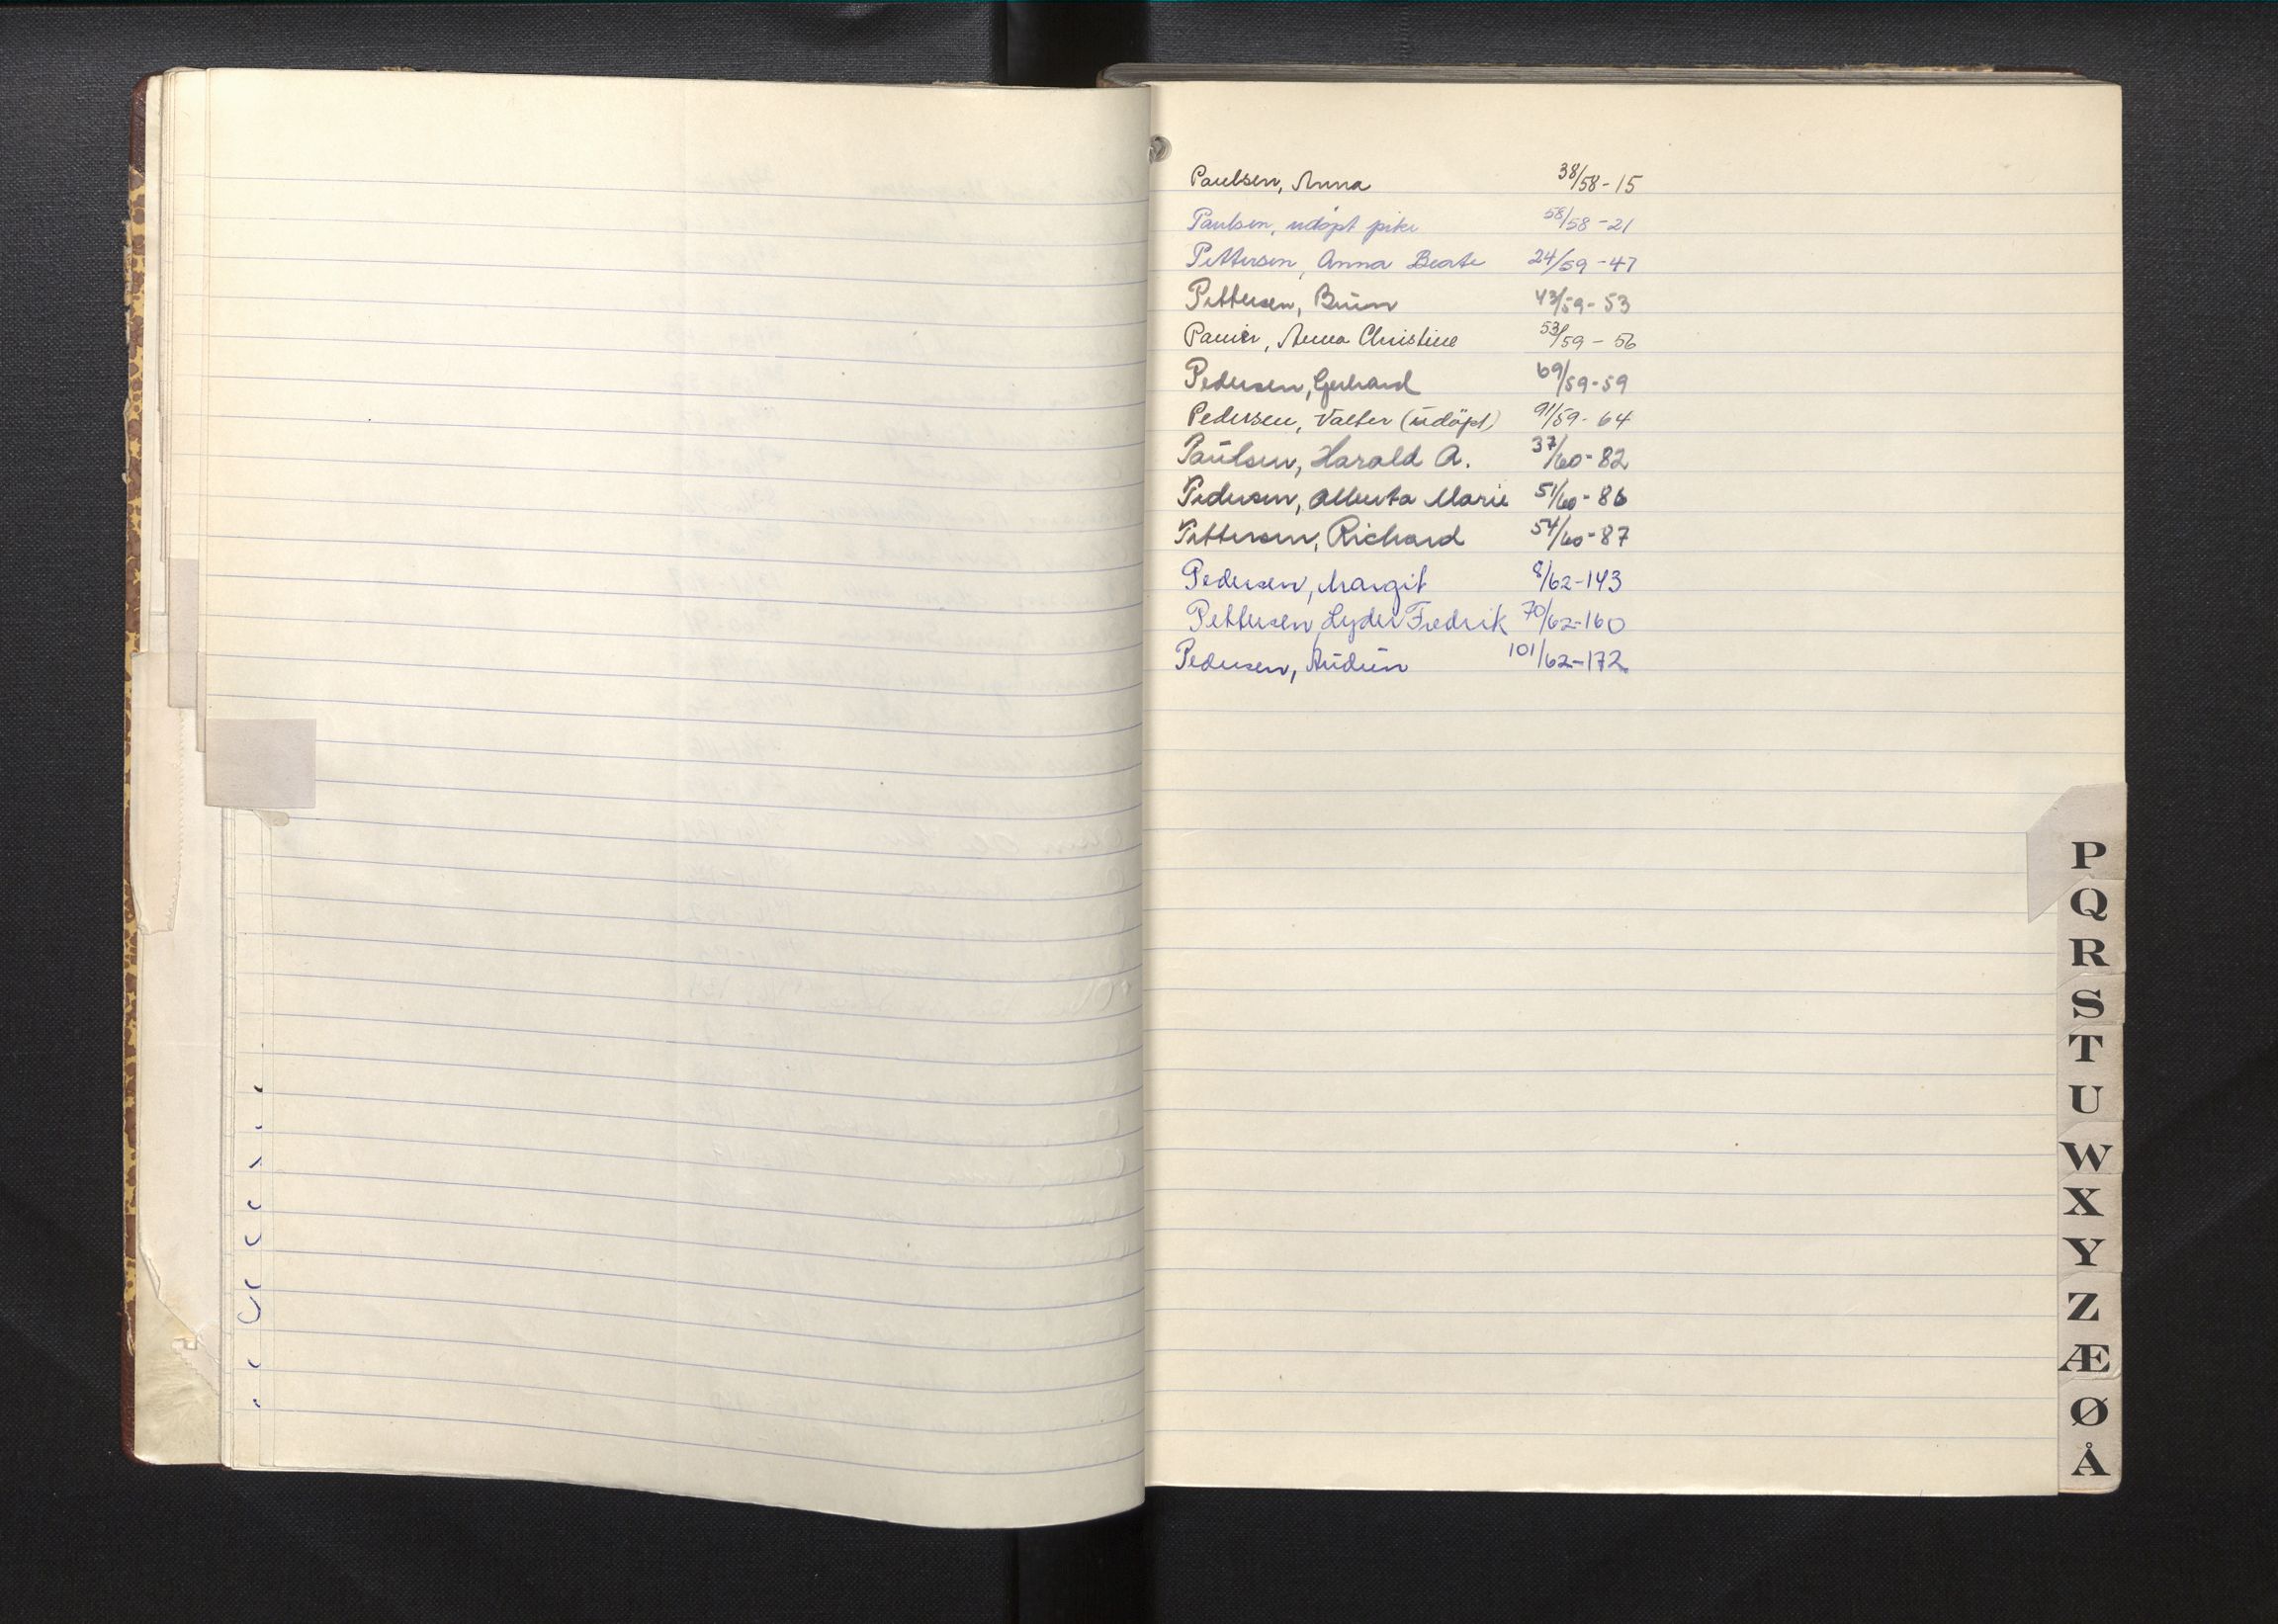 Paulsen, Anna 38/58-15
Paulsen, udøpt pike 58/58-21
Pettersen, Anna Beate 24/59-47
Pettersen, Brün 43/59-53
Anna Christine 53/59-56
Pedersen, Gerhard 69/59-59
Pedersen, Valter (udöpt) 91/59-64
Paulsen, Harald A. 37/60-82
Pedersen, Alberta Marie 51/60-86
Pettersen, Richard 54/60-87
Pedersen, Margit 8/62-143
Pettersen, Lyder Fredrik 70/62-160
Pedersen, Audun 101/62-172
P
Q
R
S
T
U
W
X
Y
Z
Æ
Ø
Å